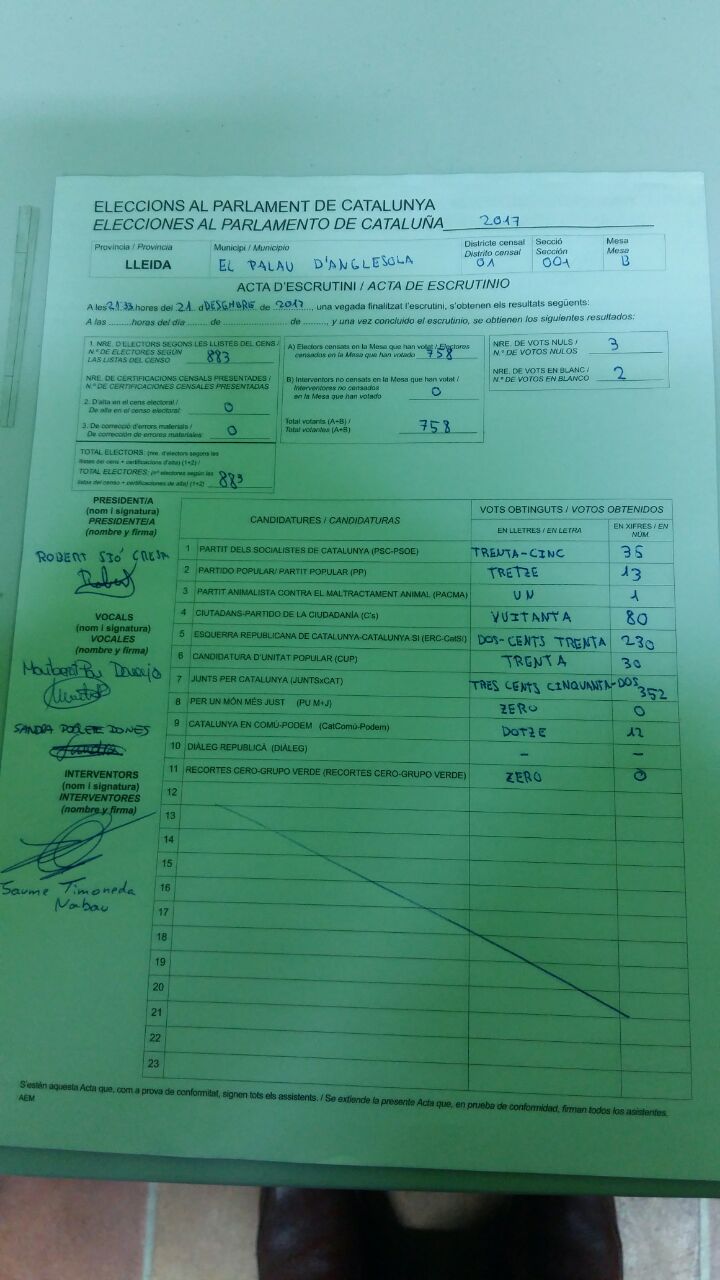 ELECCIONS AL PARLAMENT DE CATALUNYA
ELECCIONES AL PARLAMENTO DE CATALUÑA 2017
Provincia / Provincia Municipi / Municipio Districte censal Secció Mesa
Distrito censal Sección Mesa
LLEIDA EL PALAU D'ANGLESOLA 01 001 B
ACTA D'ESCRUTINI / ACTA DE ESCRUTINIO
A les 21:33 hores del 21 d DESEMBRE de 2017, una vegada finalitzat l'escrutini, s'obtenen els resultats següents:
A las ........ horas del día ....... de .................... de ........, y una vez concluido el escrutinio, se obtienen los siguientes resultados:
1. NRE. D'ELECTORS SEGONS LES LLISTES DEL CENS /
N.º DE ELECTORES SEGÚN
LAS LISTAS DEL CENSO 883
NRE. DE CERTIFICACIONS CENSALS PRESENTADES /
N.º DE CERTIFICACIONES CENSALES PRESENTADAS
2. D'alta en el cens electoral /
De alta en el censo electoral: 0
3. De correcció d'errors materials /
De corrección de errores materiales: 0
TOTAL ELECTORS: (nre. d'electors segons les
llistes del cens + certificacions d'alta) (1+2) /
TOTAL ELECTORES: (nº electores según las
listas del censo + certificaciones de alta) (1+2) 883
A) Electors censats en la Mesa que han votat / Electores
censados en la Mesa que han votado 758
B) Interventors no censats en la Mesa que han votat /
Interventores no censados
en la Mesa que han votado 0
Total votants (A+B) /
Total votantes (A+B) 758
NRE. DE VOTS NULS /
N.º DE VOTOS NULOS 3
NRE. DE VOTS EN BLANC /
N.º DE VOTOS EN BLANCO 2
PRESIDENT/A
(nom i signatura)
PRESIDENTE/A
(nombre y firma)
ROBERT
Robert
VOCALS
(nom i signatura)
VOCALES
(nombre y firma)
SANDRA
INTERVENTORS
(nom i signatura)
INTERVENTORES
(nombre y firma)
Jaume Timoneda
Nabau
CANDIDATURES / CANDIDATURAS VOTS OBTINGUTS / VOTOS OBTENIDOS
EN LLETRES / EN LETRA EN XIFRES / EN NÚM.
1 PARTIT DELS SOCIALISTES DE CATALUNYA (PSC-PSOE) TRENTA-CINC 35
2 PARTIDO POPULAR/ PARTIT POPULAR (PP) TRETZE 13
3 PARTIT ANIMALISTA CONTRA EL MALTRACTAMENT ANIMAL (PACMA) UN 1
4 CIUTADANS-PARTIDO DE LA CIUDADANÍA (C's) VUITANTA 80
5 ESQUERRA REPUBLICANA DE CATALUNYA-CATALUNYA SÍ (ERC-CatSí) DOS-CENTS TRENTA 230
6 CANDIDATURA D'UNITAT POPULAR (CUP) TRENTA 30
7 JUNTS PER CATALUNYA (JUNTSxCAT) TRES CENTS CINQUANTA-DOS 352
8 PER UN MÓN MÉS JUST (PU M+J) ZERO 0
9 CATALUNYA EN COMÚ-PODEM (CatComú-Podem) DOTZE 12
10 DIÀLEG REPUBLICÀ (DIÀLEG) - -
11 RECORTES CERO-GRUPO VERDE (RECORTES CERO-GRUPO VERDE) ZERO 0
12
13
14
15
16
17
18
19
20
21
22
23
S'estén aquesta Acta que, com a prova de conformitat, signen tots els assistents. / Se extiende la presente Acta que, en prueba de conformidad, firman todos los asistentes.
AEM